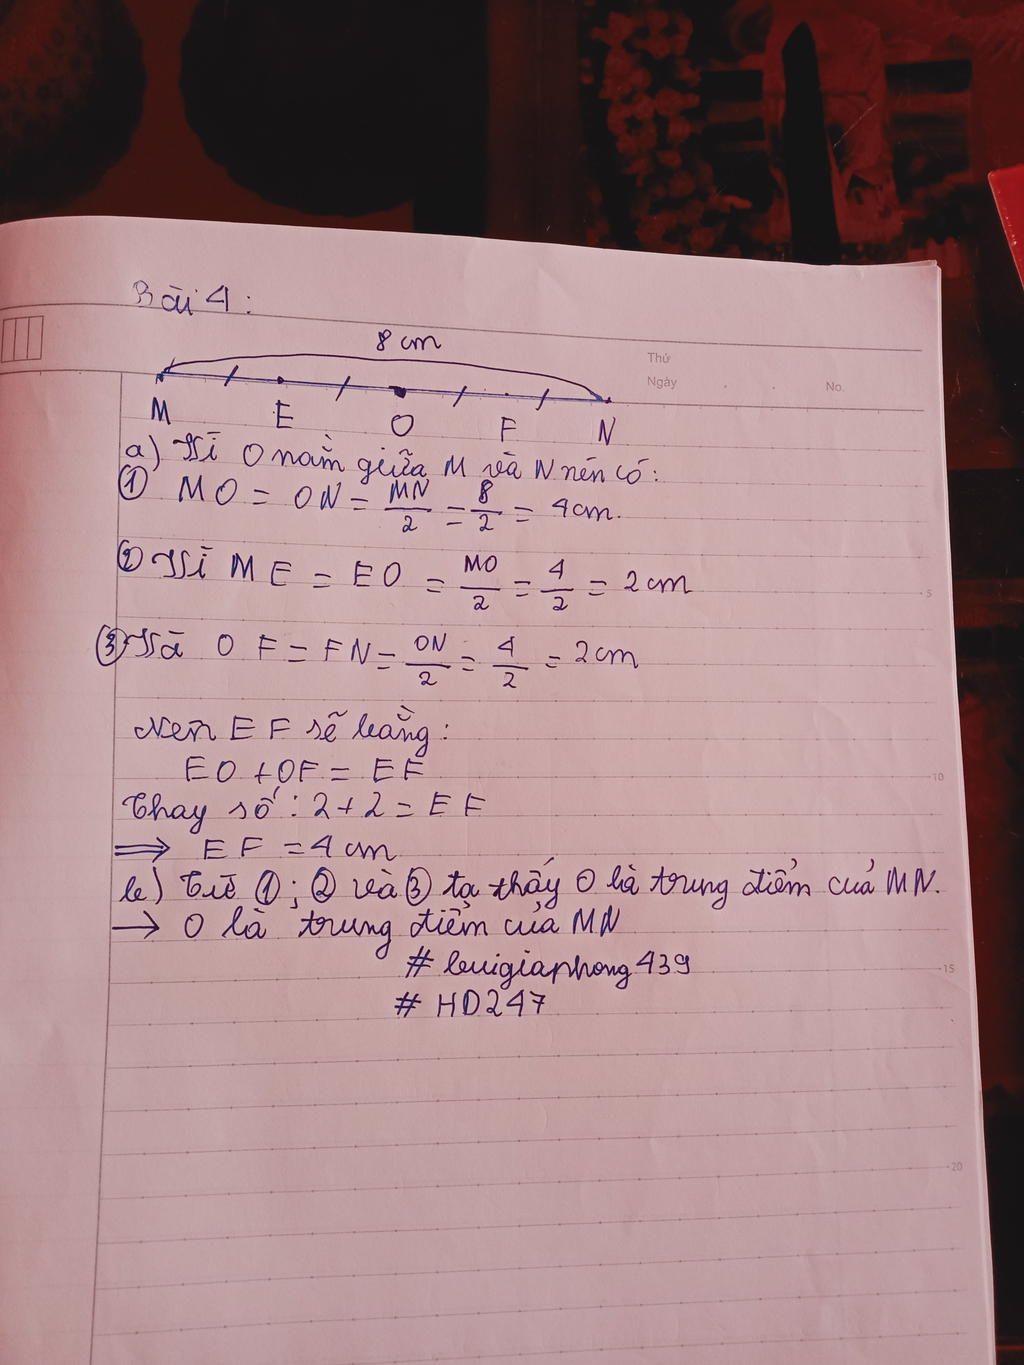 Bài 4:
8 cm
Thứ
Ngày . . No.
M E O F N
a) Vì O nằm giữa M và N nên có:
① MO = ON = MN/2 = 8/2 = 4cm.
② Vì ME = EO = MO/2 = 4/2 = 2cm
5
③ Và OF = FN = ON/2 = 4/2 = 2cm
Nên EF sẽ bằng:
EO + OF = EF
10
Thay số: 2 + 2 = EF
⇒ EF = 4 cm
b) Từ ①; ② và ③ ta thấy O là trung điểm của MN.
→ O là trung điểm của MN
# buigiaphong439
15
# HD247
20